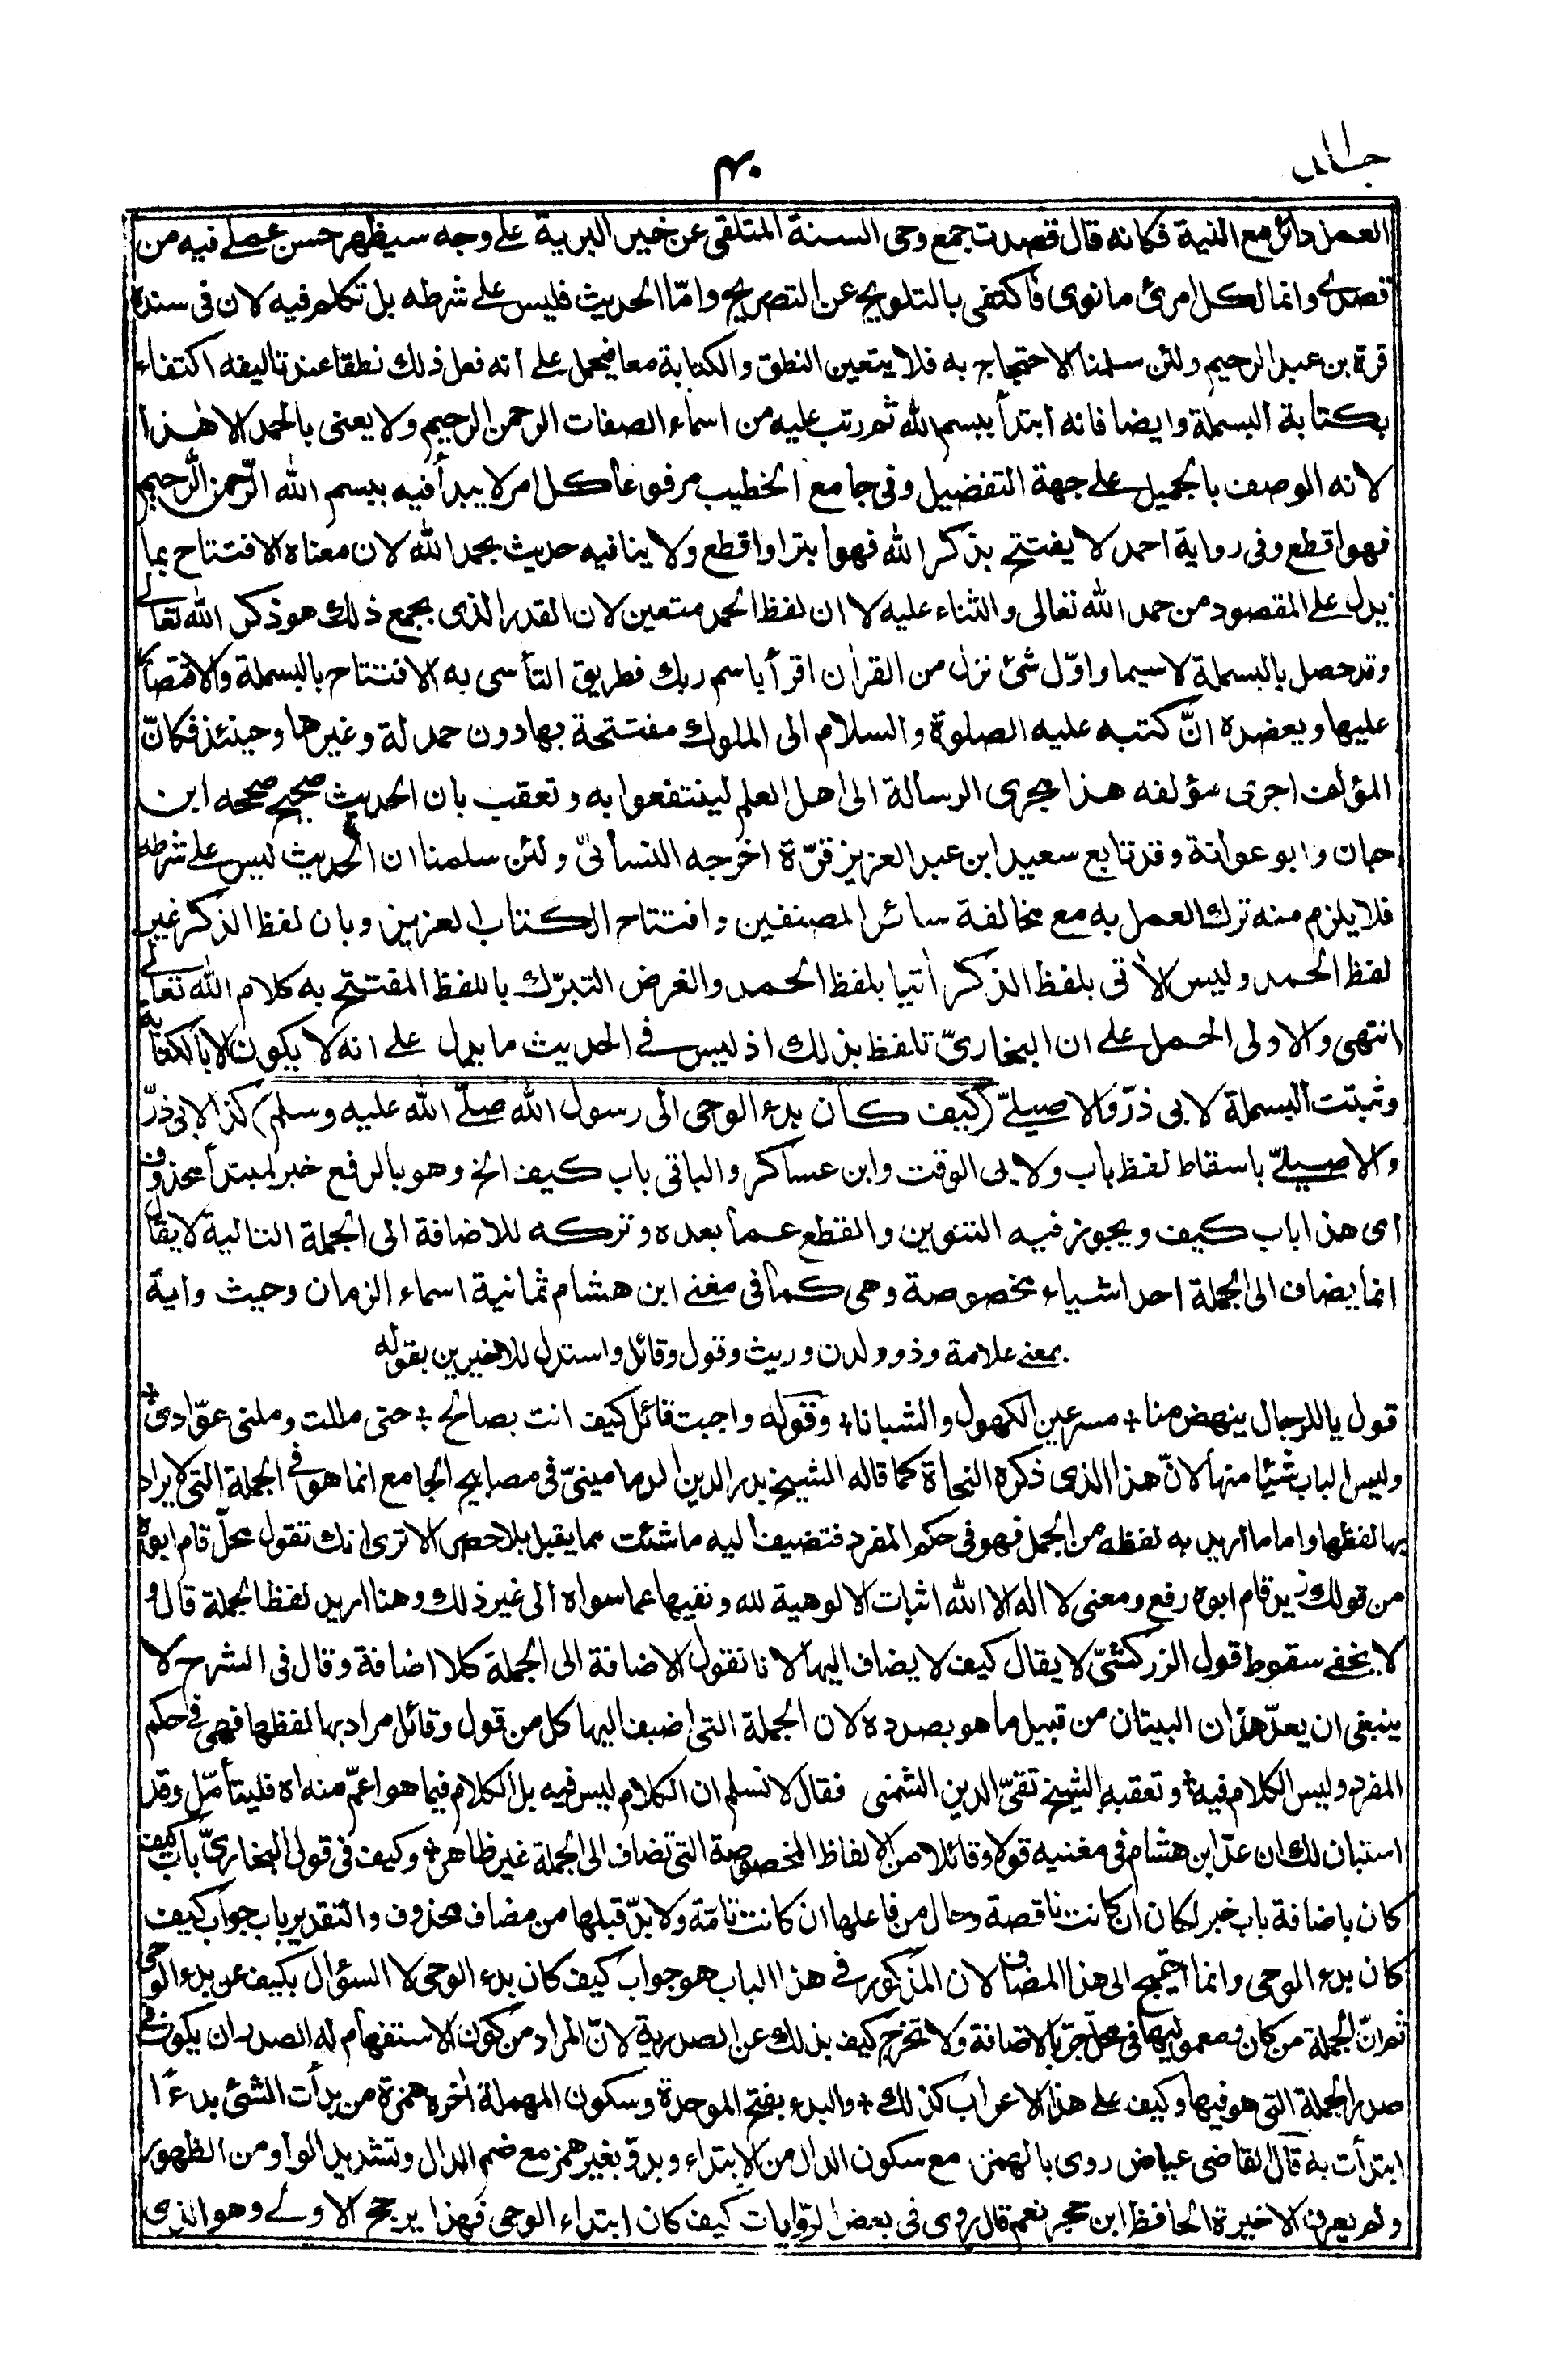 جلد
٤٠
العمل دائر مع النية فكانه قال قصدت جمع وحى السنة المتلقى عن خير البرية على وجه سيظهر حسن عملى فيه من
قصدى وانما لكل امرئ ما نوى فاكتفى بالتلويح عن التصريح وامّا الحديث فليس على شرطه بل تكلم فيه لان فى سنده
قرة بن عبد الرحيم ولئن سلمنا الاحتجاج به فلا يتعين النطق والكتابة معا فيحمل على انه فعل ذلك نطقا عند تاليفه اكتفاء
بكتابة البسملة وايضا فانه ابتدأ ببسم الله ثم رتب عليه من اسماء الصفات الرحمن الرحيم ولا يعنى بالحمد الا هذا
لانه الوصف بالجميل على جهة التفضيل وفى جامع الخطيب مرفوعا كل امر لا يبدأ فيه ببسم الله الرّحمن الرّحيم
فهو اقطع وفى رواية احمد لا يفتتح بذكر الله فهو ابتر او اقطع ولا ينافيه حديث بحمد الله لان معناه الافتتاح بما
يدل على المقصود من حمد الله تعالى والثناء عليه لا ان لفظ الحمد متعين لان القدر الذى يجمع ذلك هو ذكر الله تعالى
وقد حصل بالبسملة لا سيما واوّل شئ نزل من القران اقرأ باسم ربك فطريق التأسى به الافتتاح بالبسملة والاقتصار
عليها ويعضده انّ كتبه عليه الصلوة والسلام الى الملوك مفتتحة بها دون حمدلة وغيرها وحينئذ فكانّ
المؤلف اجرى مؤلفه هذا مجرى الرسالة الى اهل العلم لينتفعوا به وتعقب بان الحديث صحيح صححه ابن
حبان وابو عوانة وقد تابع سعيد ابن عبد العزيز قرّة اخرجه النسائىّ ولئن سلمنا ان الحديث ليس على شرطه
فلا يلزم منه ترك العمل به مع مخالفة سائر المصنفين وافتتاح الكتاب العزيز وبان لفظ الذكر غير
لفظ الحمد وليس الأتى بلفظ الذكر أتيا بلفظ الحمد والغرض التبرّك باللفظ المفتتح به كلام الله تعالى
انتهى والاولى الحمل على ان البخارىّ تلفظ بذلك اذ ليس فى الحديث ما يدل على انه لا يكون الا بالكتابة
وثبتت البسملة لابى ذرّ والاصيلىّ (كيف كان بدء الوحى الى رسول الله صلّى الله عليه وسلم) كذا لابى ذرّ
والاصيلىّ باسقاط لفظ باب ولابى الوقت وابن عساكر والباقى باب كيف الخ وهو بالرفع خبر لمبتدأ محذوف
اى هذا باب كيف ويجوز فيه التنوين والقطع عما بعده وتركه للاضافة الى الجملة التالية لا يقال
انما يضاف الى الجملة احد اشياء مخصوصة وهى كما فى مغنى ابن هشام ثمانية اسماء الزمان وحيث واية
بمعنى علامة وذو ولدن وريث وقول وقائل واستدل للاخيرين بقوله
قول يا للرجال ينهض منا + مسرعين الكهول والشبانا + وقوله واجبت قائل كيف انت بصالح + حتى مللت وملنى عوّادى +
وليس الباب شيئا منها لانّ هذا الذى ذكره النحاة كما قاله الشيخ بدر الدين الدمامينىّ فى مصابيح الجامع انما هو فى الجملة التى لا يراد
بها لفظها واما ما اريد به لفظه من الجمل فهو فى حكم المفرد فتضيف اليه ما شئت مما يقبل بلا حصر الا ترى انك تقول محلّ قام ابوه
من قولك زيد قام ابوه رفع ومعنى لا اله الا الله اثبات الالوهية لله ونفيها عما سواه الى غير ذلك وهنا اريد لفظ الجملة قال و
لا يخفى سقوط قول الزركشىّ لا يقال كيف لا يضاف اليها لانا نقول الاضافة الى الجملة كلا اضافة وقال فى الشرح لا
ينبغى ان يعدّ هذان البيتان من قبيل ما هو بصدده لان الجملة التى اضيف اليها كل من قول وقائل مراد بها لفظها فهى فى حكم
المفرد وليس الكلام فيه + وتعقبه الشيخ تقىّ الدين الشمنى فقال لا نسلم ان الكلام ليس فيه بل الكلام فيما هو اعمّ منه اه فليتأمّل وقد
استبان لك ان عدّ ابن هشام فى مغنيه قولا وقائلا من الالفاظ المخصوصة التى تضاف الى الجملة غير ظاهر + وكيف فى قول البخارىّ باب كيف
كان باضافة باب خبر لكان ان كانت ناقصة وحال من فاعلها ان كانت تامّة ولا بدّ قبلها من مضاف محذوف والتقدير باب جواب كيف
كان بدء الوحى وانما احتيج الى هذا المضاف لان المذكور فى هذا الباب هو جواب كيف كان بدء الوحى لا السؤال بكيف عن بدء الوحى
ثم انّ الجملة من كان ومعموليها فى محلّ جرّ بالاضافة ولا تخرج كيف بذلك عن الصدرية لانّ المراد من كون الاستفهام له الصدر ان يكون فى
صدر الجملة التى هو فيها وكيف على هذا الاعراب كذلك + والبدء بفتح الموحدة وسكون المهملة اخره همزة من بدأت الشئ بدءًا
ابتدأت به قال القاضى عياض روى بالهمز مع سكون الدال من الابتداء وبدوّ بغير همز مع ضم الدال وتشديد الواو من الظهور
ولم يعرف الاخيرة الحافظ ابن حجر نعم قال روى فى بعض الرّوايات كيف كان ابتداء الوحى فهذا يرجح الاولى وهو الذى